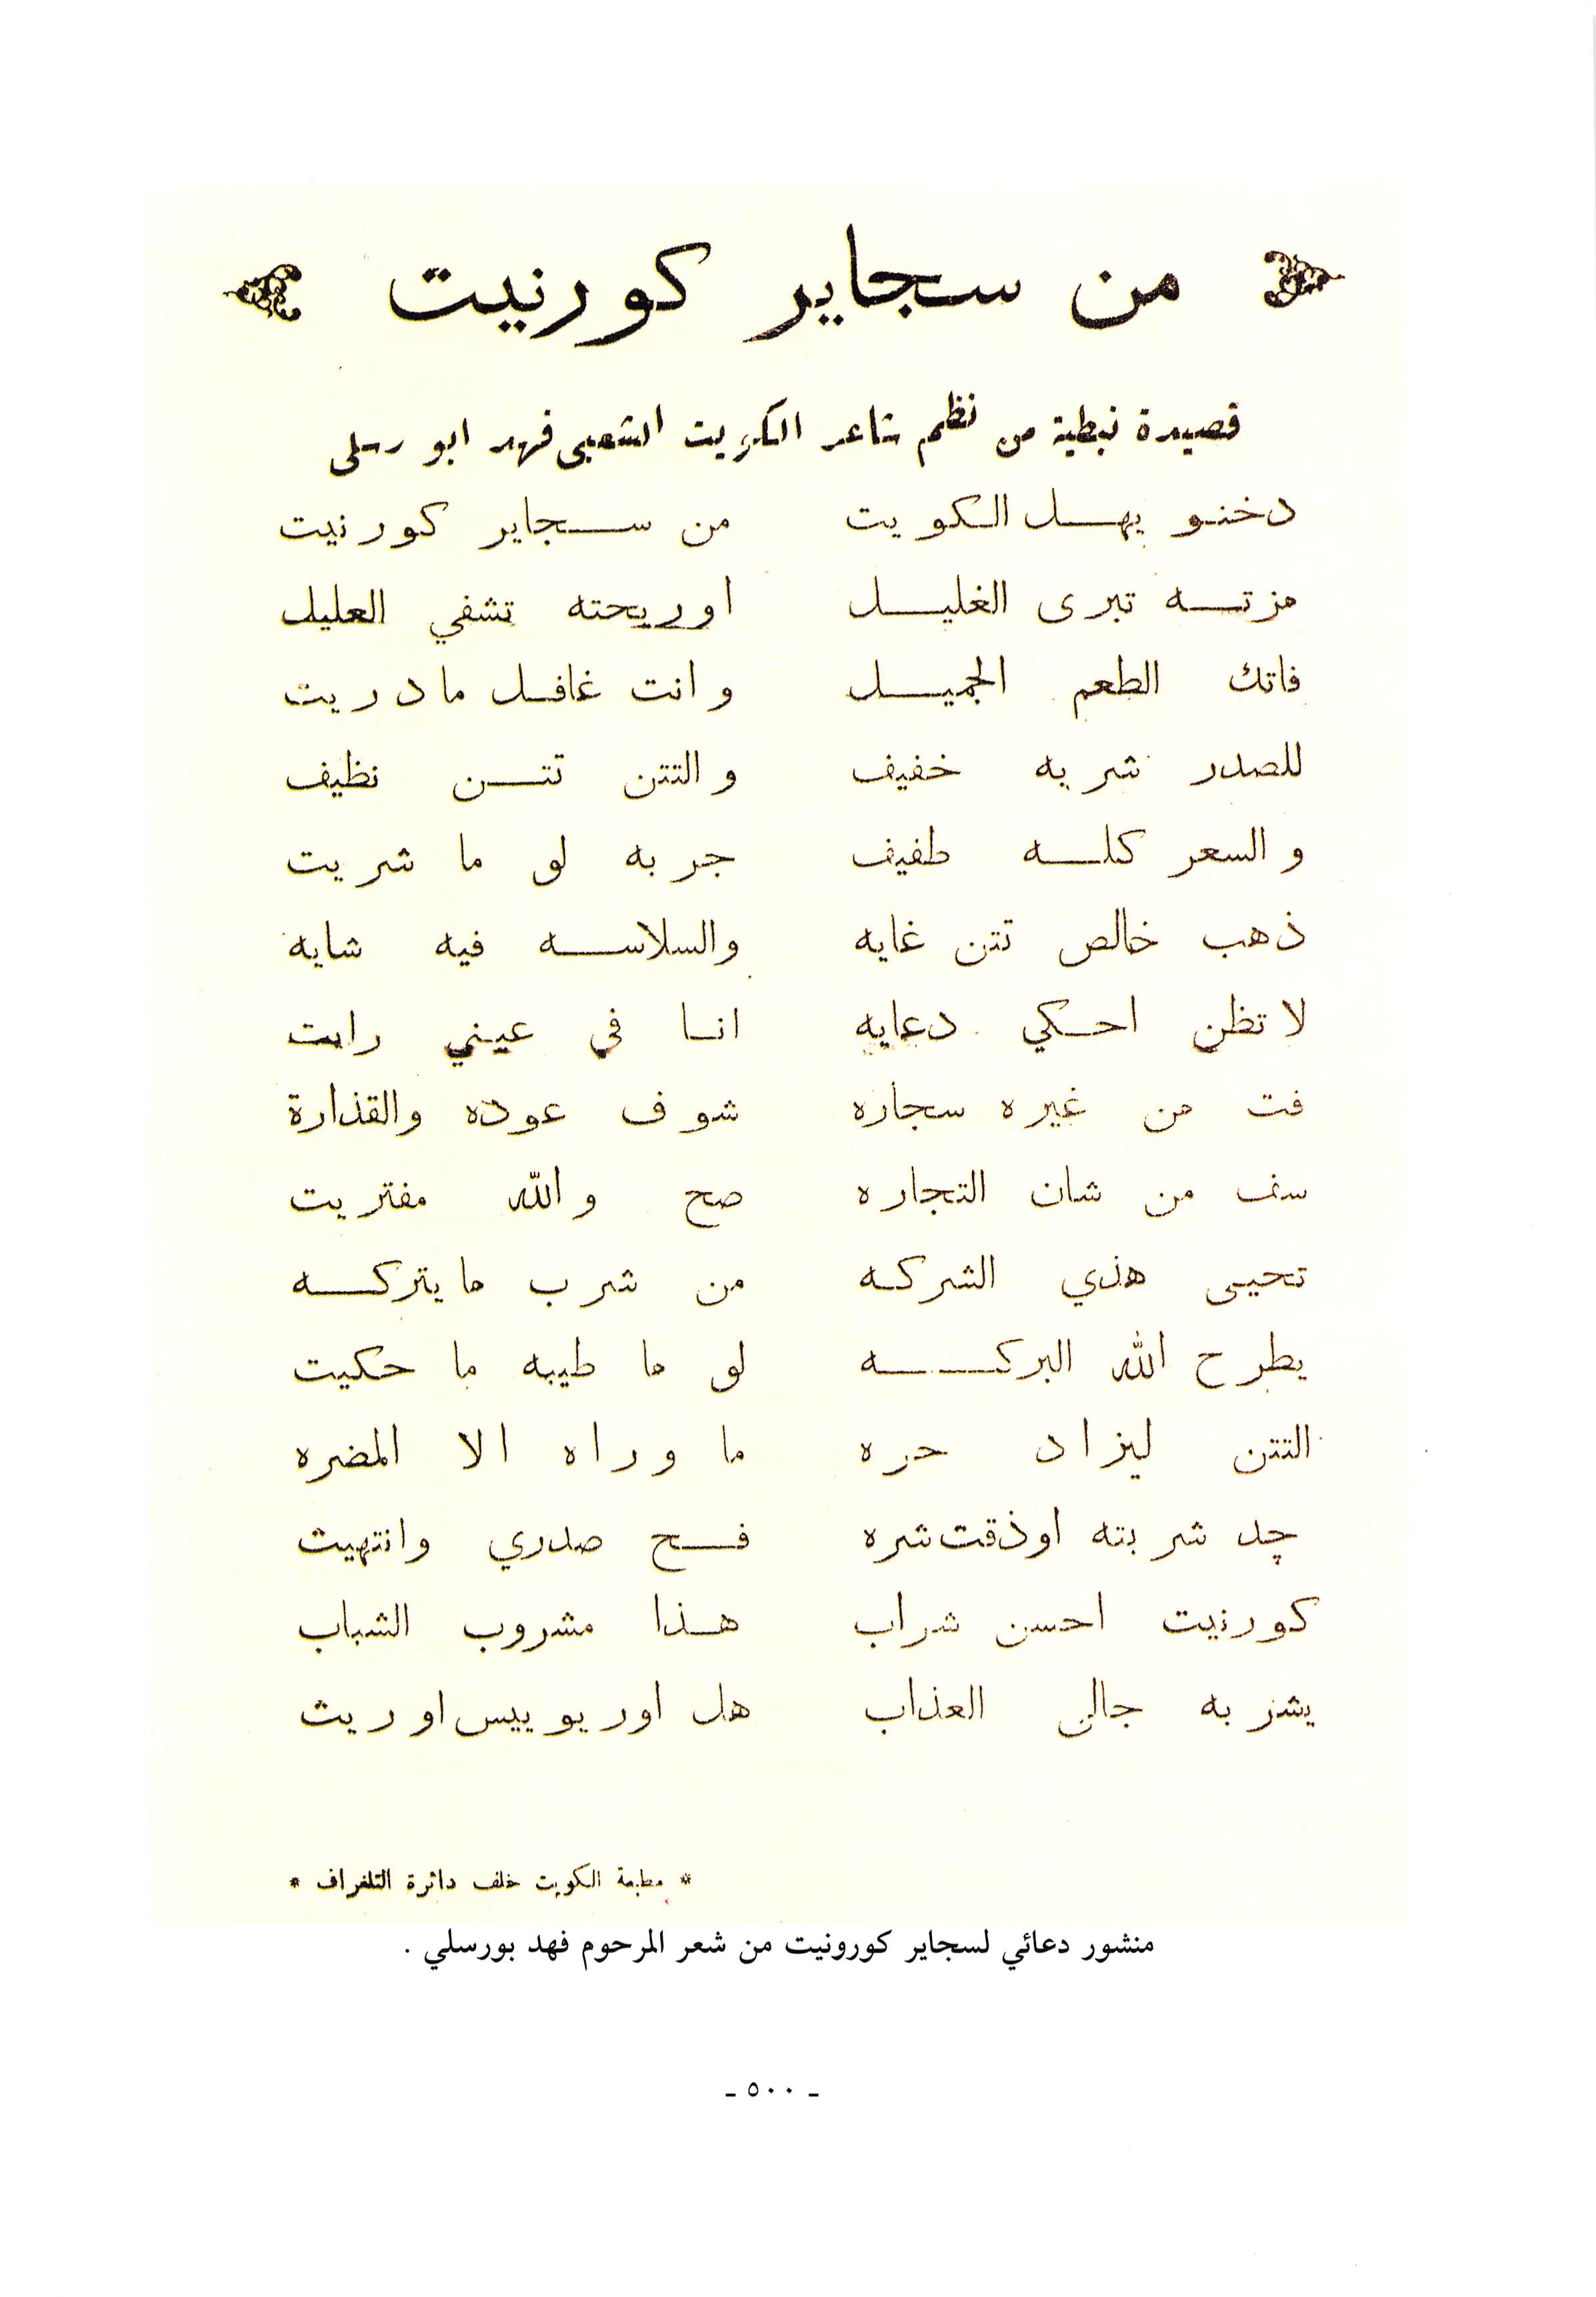 من سجاير كورنيت
قصيدة نبطية من نظم شاعر الكويت الشعبي فهد ابو رسلي
دخنو يهل الكويت من سجاير كورنيت
مزته تبرى الغليل اوريحته تشفي العليل
فاتك الطعم الجميل وانت غافل مادريت
للصدر شربه خفيف والتتن تتن نظيف
والسعر كله طفيف جربه لو ما شريت
ذهب خالص تتن غايه والسلاسه فيه شايه
لا تظن احكي دعايه انا في عيني رايت
فت من غيره سجاره شوف عوده والقذارة
من شان التجاره صح والله مفتريت
تحيى هذي الشركه من شرب مايتركه
يطرح الله البركه لو ما طيبه ما حكيت
التتن ليزاد حره ما وراه الا المضره
چد شربته اوذقت شره فح صدري وانتهيت
كورنيت احسن شراب هذا مشروب الشباب
يشربه جالي العذاب هل اوريوييس اوريت
* مطبعة الكويت خلف دائرة التلغراف *
منشور دعائي لسجاير كورونيت من شعر المرحوم فهد بورسلي .
- ٥٠٠ -